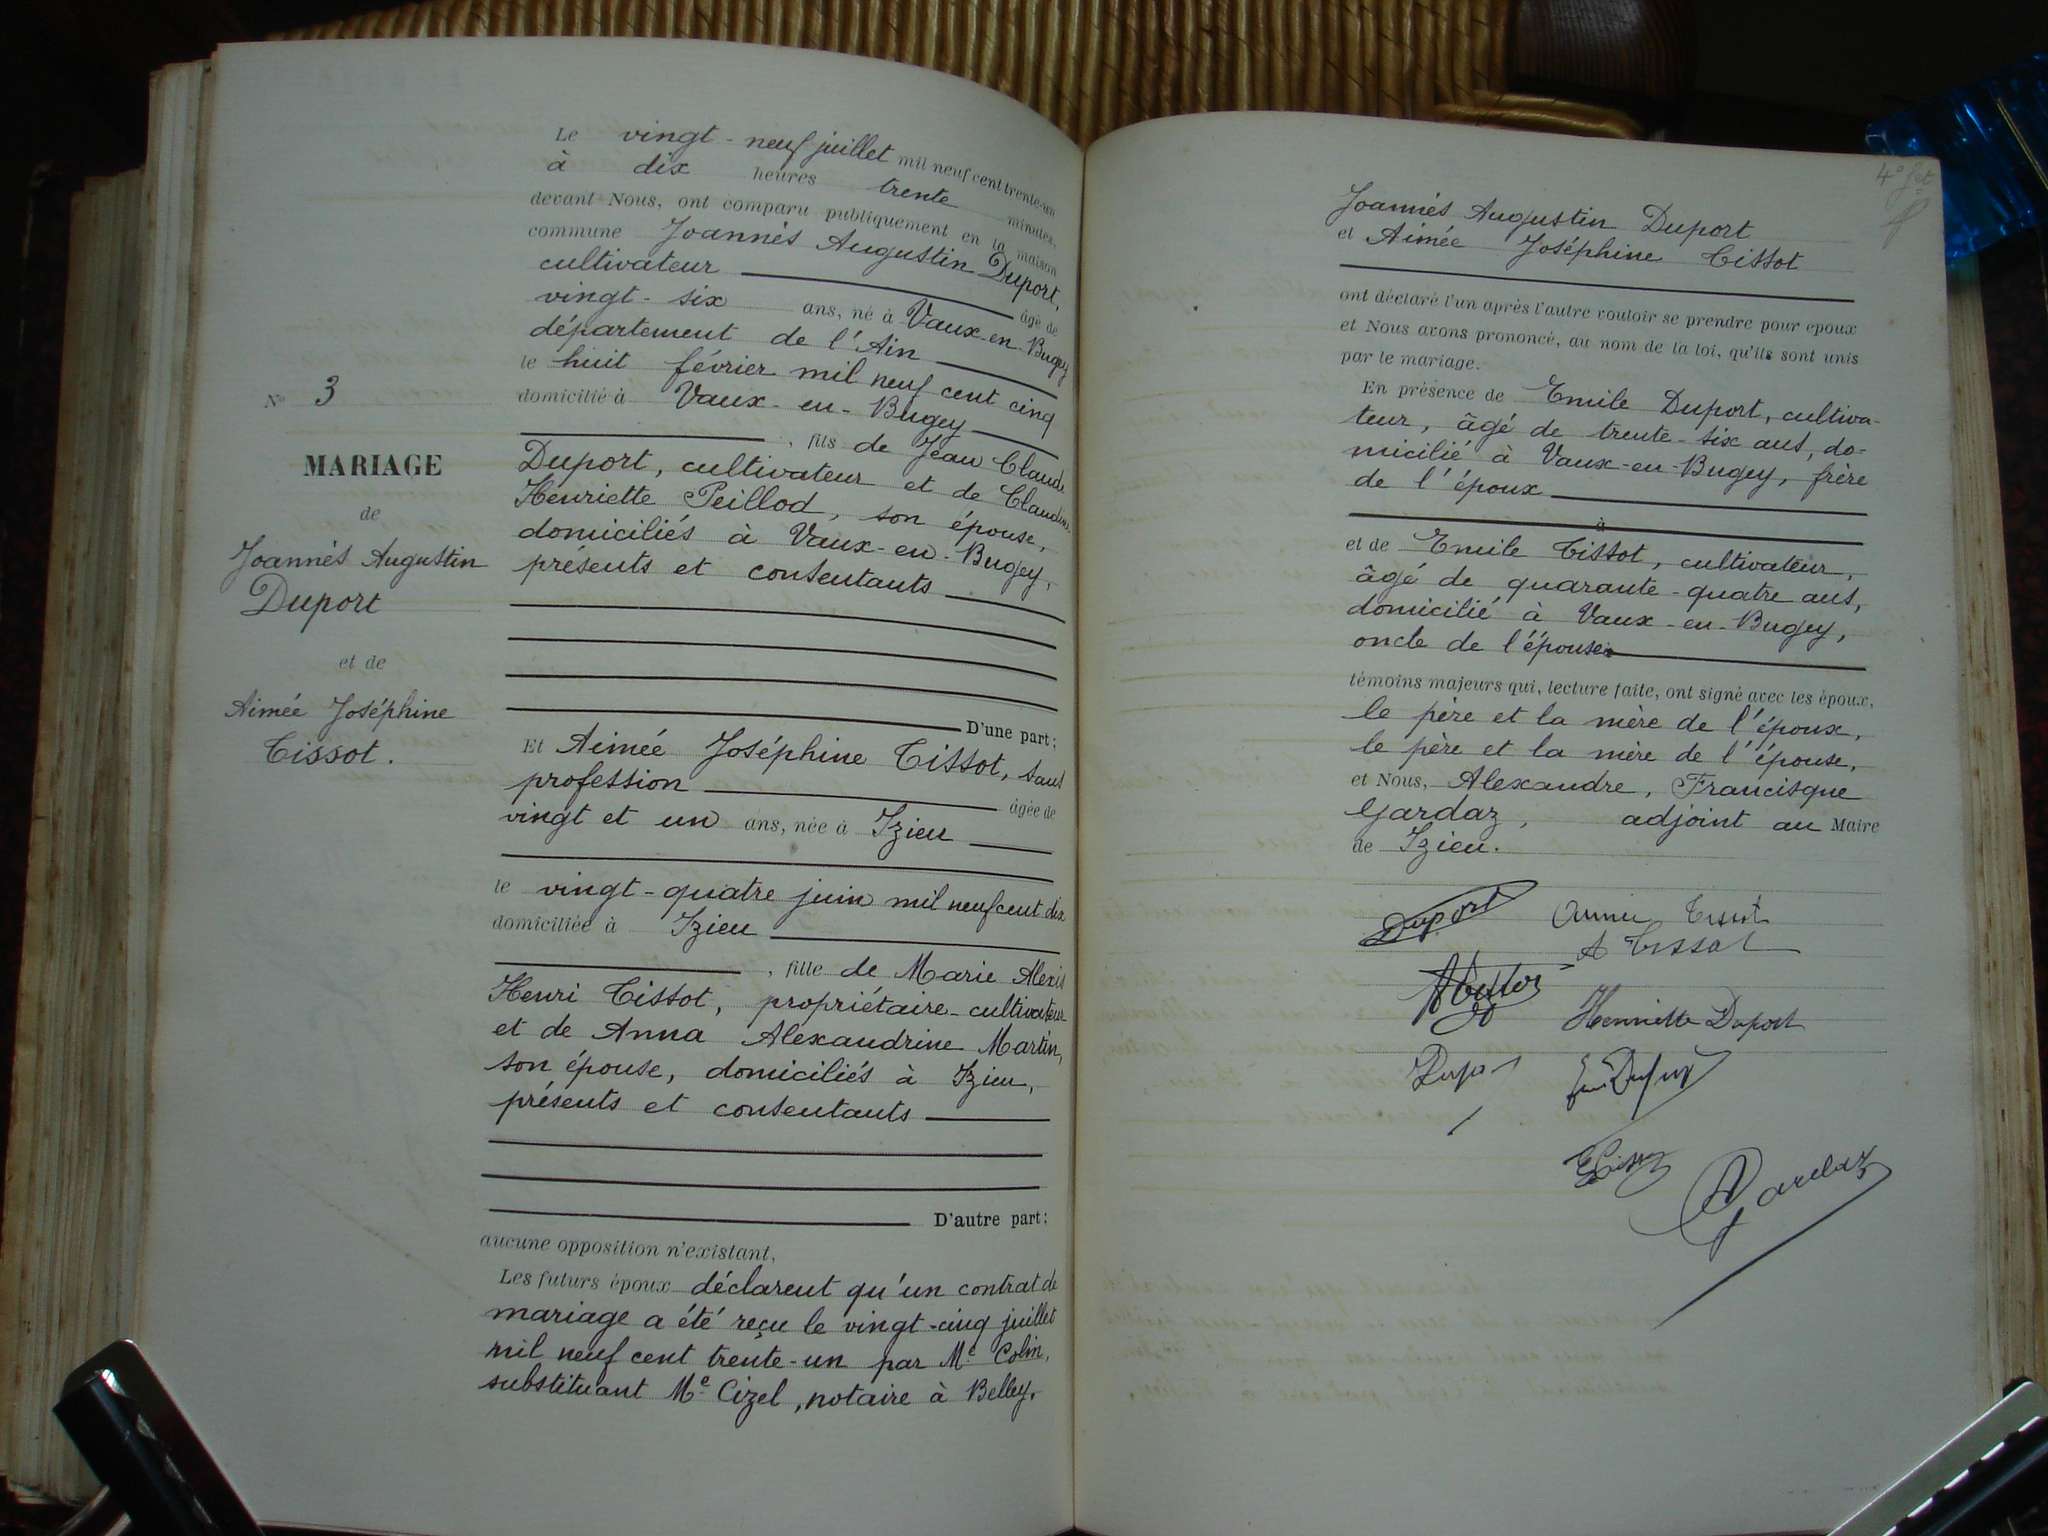 Le vingt-neuf juillet mil neuf cent trente-un
à dix heures trente minutes,
devant Nous, ont comparu publiquement en la maison
commune Joannès Augustin Duport,
cultivateur âgé de
vingt-six ans, né à Vaux-en-Bugey
département de l'Ain
le huit février mil neuf cent cinq
domicilié à Vaux-en-Bugey
, fils de Jean Claude
Duport, cultivateur et de Claudine
Henriette Peillod, son épouse,
domiciliés à Vaux-en-Bugey,
présents et consentants
D'une part;
Et Aimée Joséphine Tissot, sans
profession âgée de
vingt et un ans, née à Izieu
le vingt-quatre juin mil neuf cent dix
domiciliée à Izieu
, fille de Marie Alexis
Henri Tissot, propriétaire-cultivateur
et de Anna Alexandrine Martin,
son épouse, domiciliés à Izieu,
présents et consentants
D'autre part;
aucune opposition n'existant,
Les futurs époux déclarent qu'un contrat de
mariage a été reçu le vingt-cinq juillet
mil neuf cent trente-un par Me Colin,
substituant Me Cizel, notaire à Belley.
No 3
MARIAGE
de
Joannès Augustin
Duport
et de
Aimée Joséphine
Tissot.
4e fet
Joannès Augustin Duport
et Aimée Joséphine Tissot
ont déclaré l'un après l'autre vouloir se prendre pour epoux
et Nous avons prononcé, au nom de la loi, qu'ils sont unis
par le mariage.
En présence de Emile Duport, cultiva-
teur, âgé de trente-six ans, do-
micilié à Vaux-en-Bugey, frère
de l'époux
à
et de Emile Tissot, cultivateur,
âgé de quarante-quatre ans,
domicilié à Vaux-en-Bugey,
oncle de l'épouse
témoins majeurs qui, lecture faite, ont signé avec les époux,
le père et la mère de l'époux,
le père et la mère de l'épouse,
et Nous, Alexandre, Francisque
Gardaz, adjoint au Maire
de Izieu.
Duport Aimée Tissot
A Tissot
Henriette Duport
Dupor
Gardaz